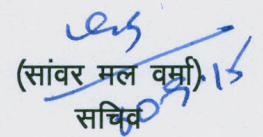 (सांवर मल वर्मा)
सचिव